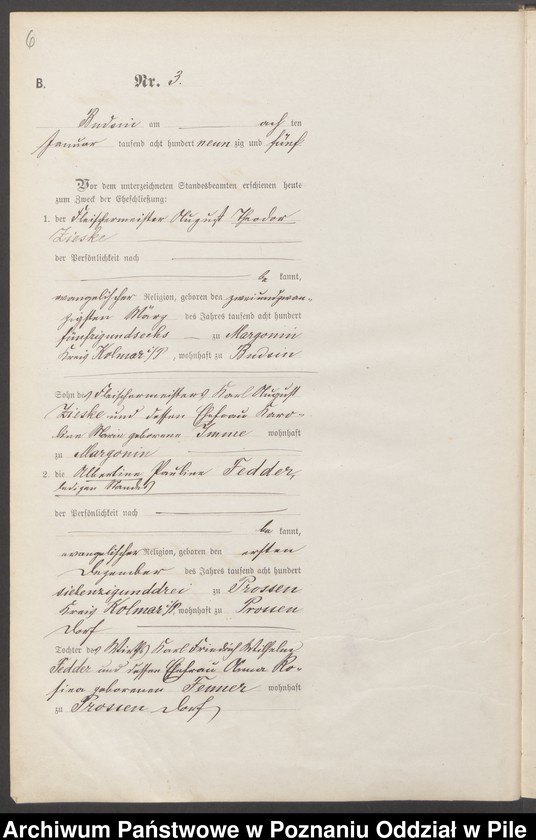 6
B. Nr. 3.
Budsin am achten
Januar tausend acht hundert neunzig und fünf
Vor dem unterzeichneten Standesbeamten erschienen heute
zum Zweck der Eheschließung:
1. der Fleischermeister August Theodor
Zieske
der Persönlichkeit nach
bekannt,
evangelischer Religion, geboren den zweiundzwan-
zigsten März des Jahres tausend acht hundert
fünfzigundsechs zu Margonin
Kreis Kolmar i/P, wohnhaft zu Budsin
Sohn des Fleischermeisters Karl August
Zieske und dessen Ehefrau Karo-
line Marie geborene Imme wohnhaft
zu Margonin
2. die Albertine Pauline Fedder,
ledigen Standes
der Persönlichkeit nach
bekannt,
evangelischer Religion, geboren den ersten
Dezember des Jahres tausend acht hundert
siebenzigunddrei zu Prossen
Kreis Kolmar i/P, wohnhaft zu Prossen
Dorf
Tochter des Wirths Karl Friedrich Wilhelm
Fedder und dessen Ehefrau Anna Ro-
sina geborenen Fenner wohnhaft
zu Prossen Dorf
Archiwum Państwowe w Poznaniu Oddział w Pile